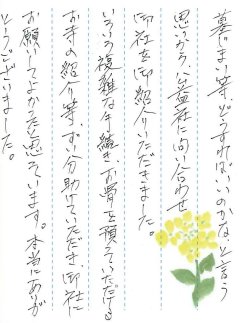 墓じまい等どうすればいいのかなと言う
思いから、公益社に問い合わせ
御社を御紹介いただきました。
いろいろ複雑な手続き、お骨を預っていただける
お寺の紹介等、ずい分助けていただき御社に
お願いしてよかったと思っています。本当にありが
とうございました。